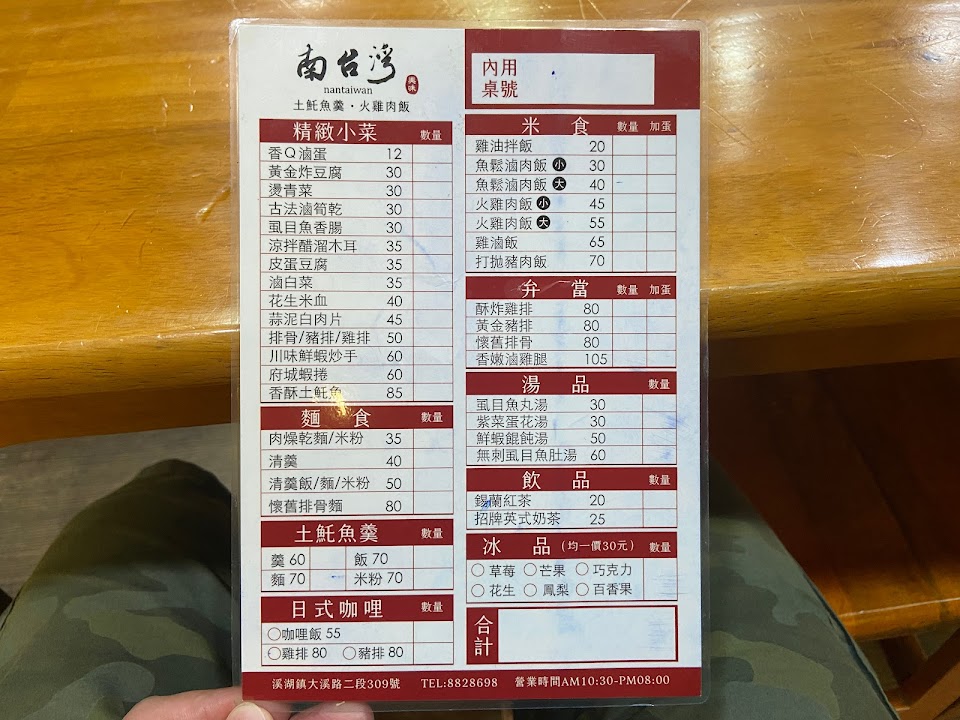 南台灣
nantaiwan
美味
土魠魚羹・火雞肉飯
內用
桌號
精緻小菜 數量
香Q滷蛋 12
黃金炸豆腐 30
燙青菜 30
古法滷筍乾 30
虱目魚香腸 30
涼拌醋溜木耳 35
皮蛋豆腐 35
滷白菜 35
花生米血 40
蒜泥白肉片 45
排骨/豬排/雞排 50
川味鮮蝦炒手 60
府城蝦捲 60
香酥土魠魚 85
麵食 數量
肉燥乾麵/米粉 35
清羹 40
清羹飯/麵/米粉 50
懷舊排骨麵 80
土魠魚羹 數量
羹 60 飯 70
麵 70 米粉 70
日式咖哩 數量
○咖哩飯 55
○雞排 80 ○豬排 80
米食 數量 加蛋
雞油拌飯 20
魚鬆滷肉飯 小 30
魚鬆滷肉飯 大 40
火雞肉飯 小 45
火雞肉飯 大 55
雞滷飯 65
打拋豬肉飯 70
弁當 數量 加蛋
酥炸雞排 80
黃金豬排 80
懷舊排骨 80
香嫩滷雞腿 105
湯品 數量
虱目魚丸湯 30
紫菜蛋花湯 30
鮮蝦餛飩湯 50
無刺虱目魚肚湯 60
飲品 數量
錫蘭紅茶 20
招牌英式奶茶 25
冰品(均一價30元) 數量
○草莓 ○芒果 ○巧克力
○花生 ○鳳梨 ○百香果
合計
溪湖鎮大溪路二段309號 TEL:8828698 營業時間AM10:30-PM08:00